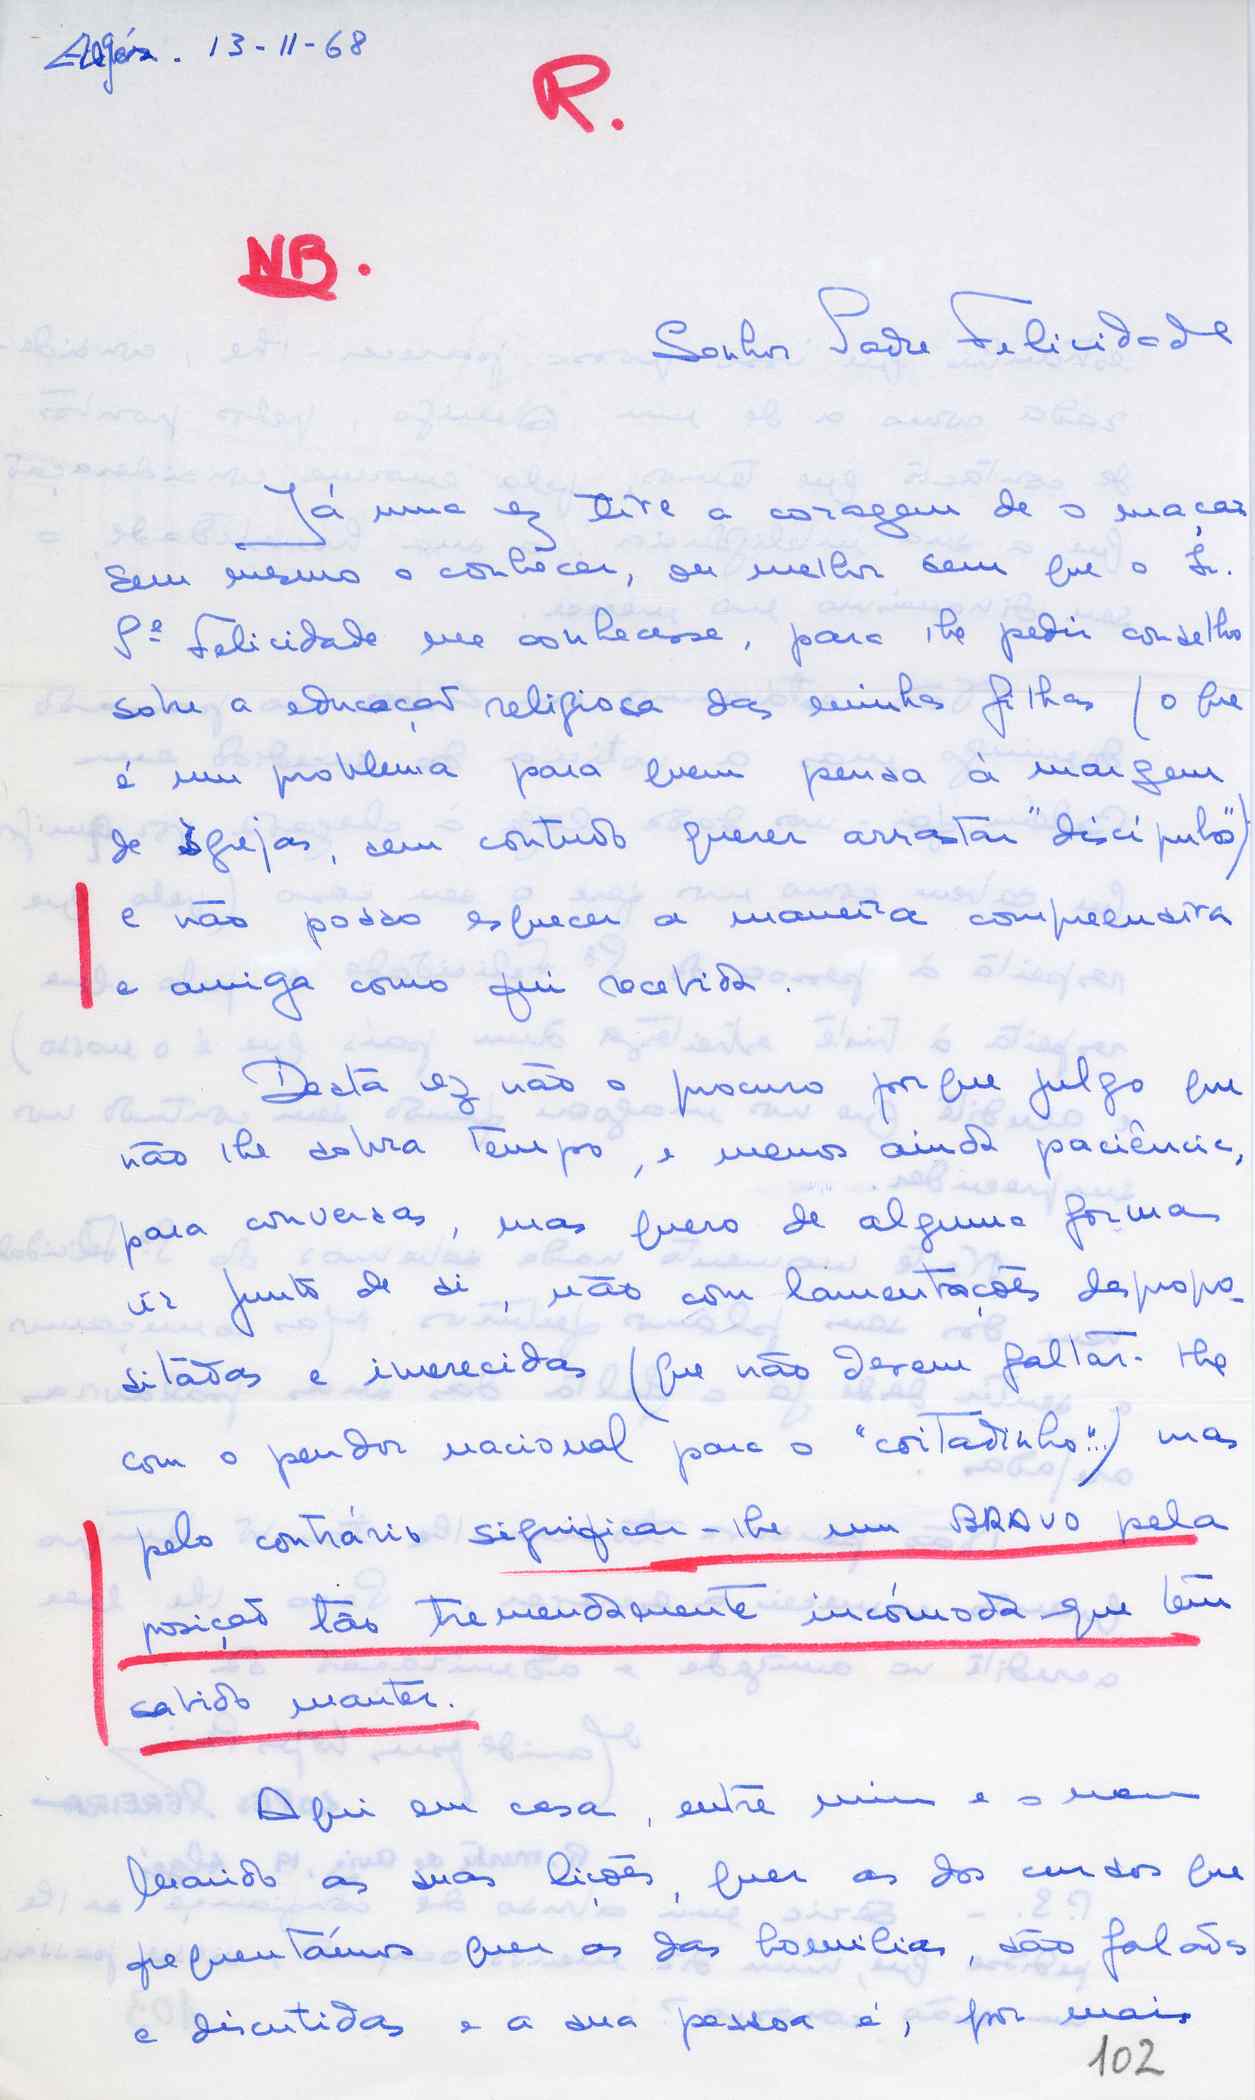 Algés. 13-11-68
R.
NB.
Senhor Padre Felicidade
Já uma vez tive a coragem de o maçar
sem mesmo o conhecer, ou melhor sem que o Sr.
Pe Felicidade me conhecesse, para lhe pedir conselho
sobre a educação religiosa das minhas filhas (o que
é um problema para quem pensa à margem
de Igrejas, sem contudo querer arrastar "discípulos")
e não posso esquecer a maneira compreensiva
e amiga como fui recebida.
Desta vez não o procuro porque julgo que
não lhe sobra tempo, e menos ainda paciência,
para conversas, mas quero de alguma forma
vir junto de si, não com lamentações despropo-
sitadas e imerecidas (que não devem faltar-lhe
com o pendor nacional para o "coitadinho"...) mas
pelo contrário significar-lhe um BRAVO pela
posição tão tremendamente incómoda que tem
sabido manter.
Aqui em casa, entre mim e o meu
marido as suas lições, quer as dos cursos que
frequentámos quer as das homilias, são faladas
e discutidas e a sua pessoa é, por mais
102